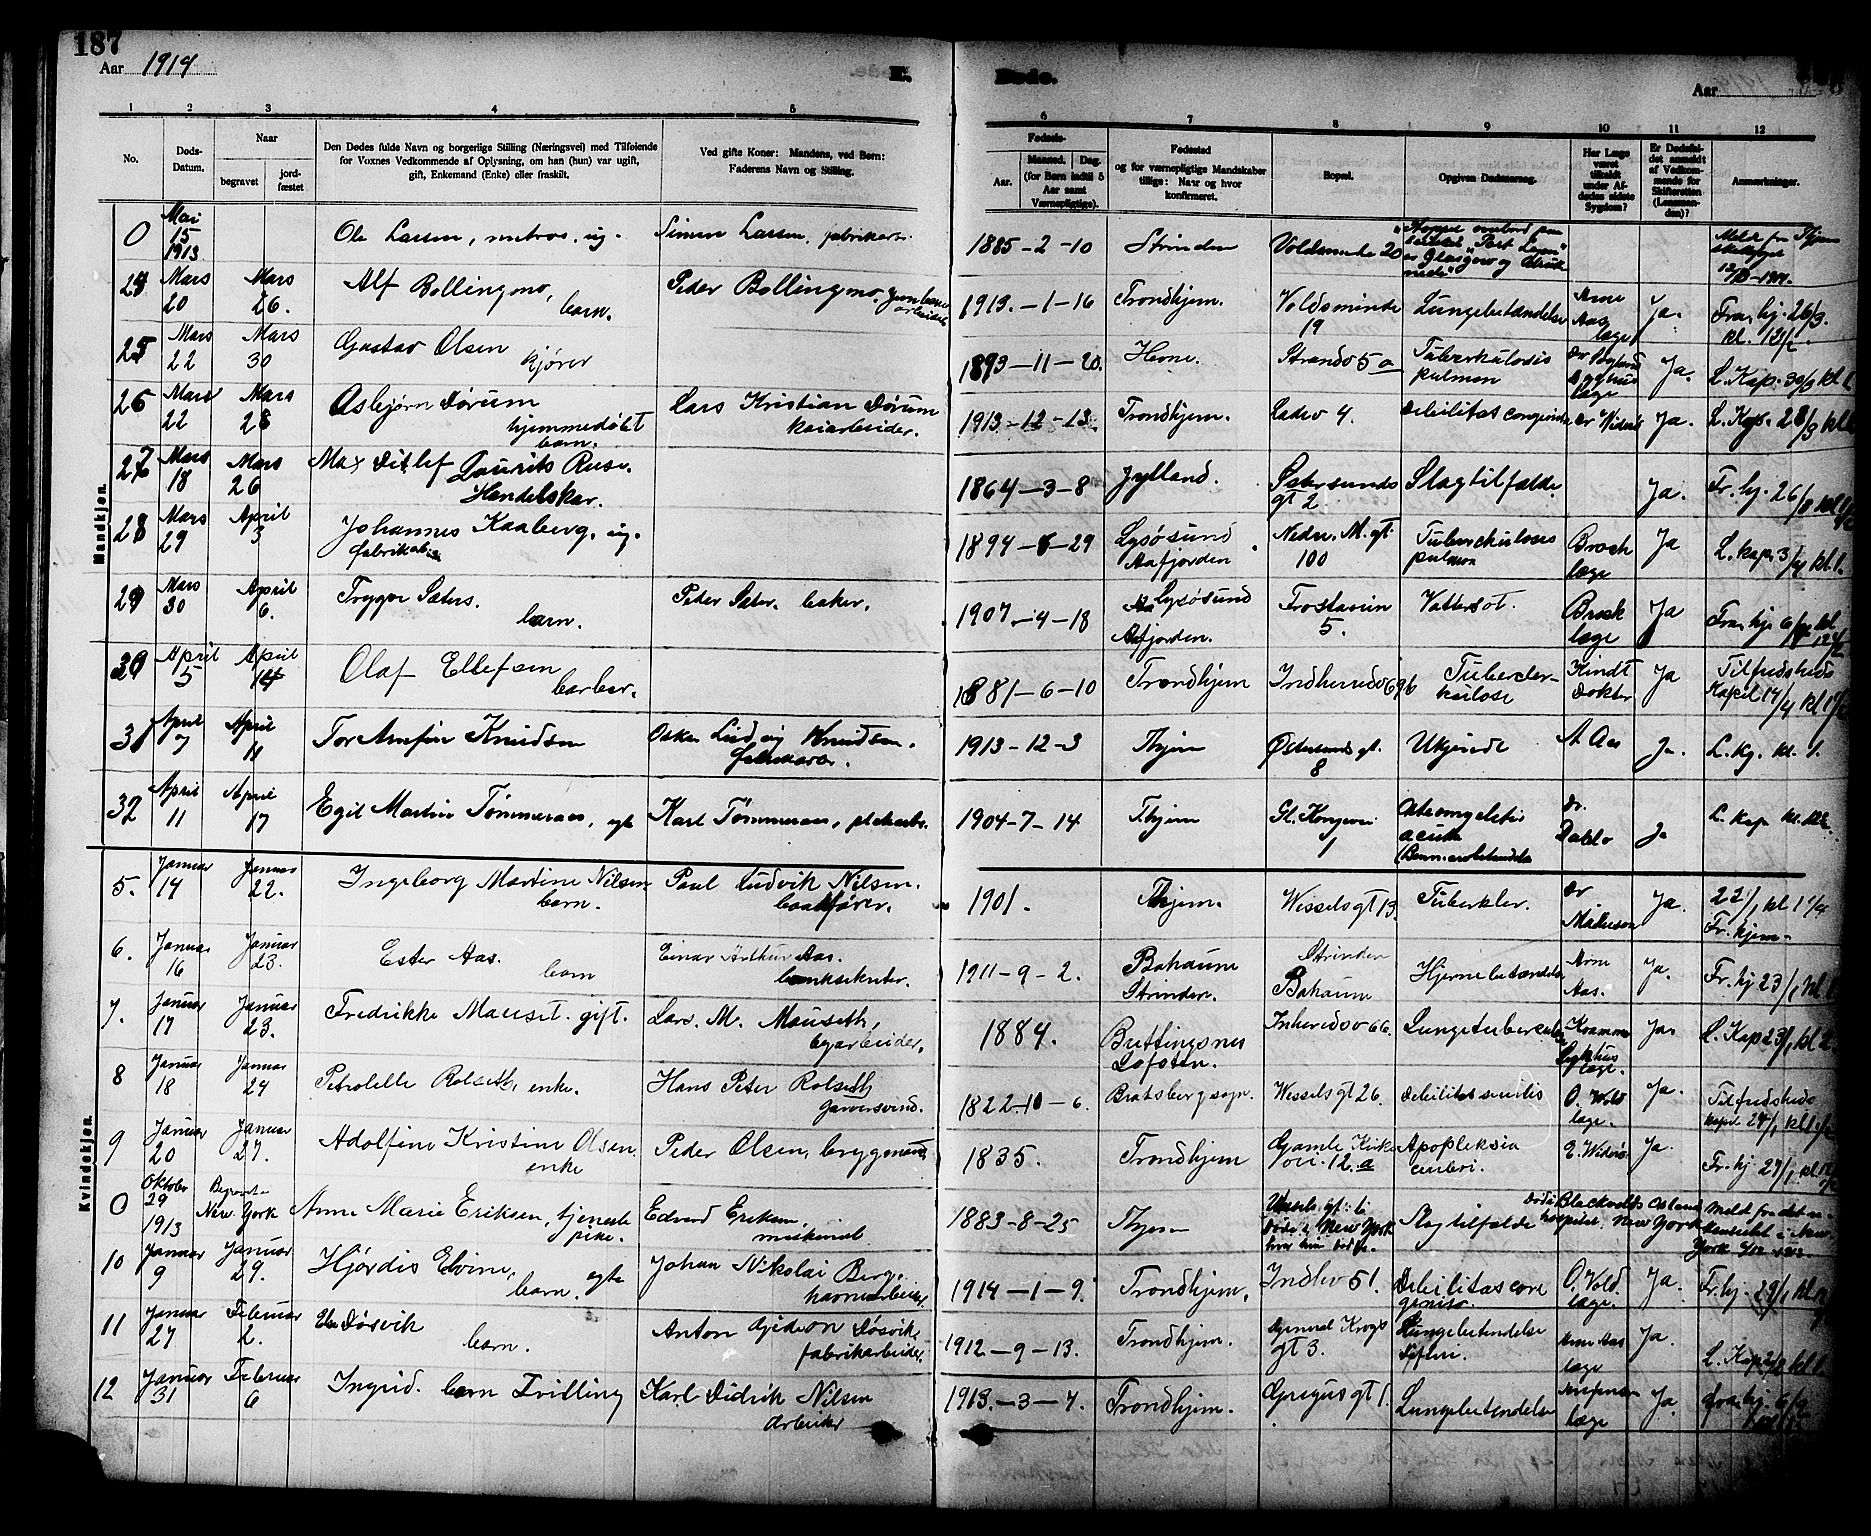 187
Aar 1914
E.
Døde.
Aar
1 2 3 4 5 6 7 8 9 10 11 12
No.
Døds-Datum.
Naar
begravet
jord-fæstet
Den Dødes fulde Navn og borgerlige Stilling (Næringsvei) med Tilføiende
for Voxnes Vedkommende af Oplysning, om han (hun) var ugift,
gift, Enkemand (Enke) eller fraskilt.
Ved gifte Koner: Mandens, ved Børn:
Faderens Navn og Stilling.
Fødsels-
Aar.
Maaned. Dag.
(for Børn indtil 5
Aar samt
Værnepligtige).
Fødested
og for værnepligtige Mandskaber
tillige: Naar og hvor
konfirmeret.
Bopæl.
Opgiven Dødsaarsag.
Har Læge
været
tilkaldt
under Af-
dødes sidste
Sygdom?
Er Dødsfal-
det anmeldt
af Vedkom-
mende for
Skifteretten
(Lensman-
den)?
Anmærkninger.
Mandkjøn.
0 Mai 15 1913 Ole Larsen, matros, ug. Simon Larsen, fabrikarb. 1885-2-10 Strinden Voldsminde 20
Mars 20 Mars 26. Alf Bollingmo, barn. Peder Bollingmo, 1913.-1-16 Trondhjem. Voldsminde 19 Lungebetændelse Arne Aas læge Ja. Fru hj. 26/3. kl. 12 1/2
25 Mars 22 Mars 30 Gustav Olsen kjører 1893-11-20. Hevne. Strandv 5 a Tuberkulosis pulmon Ja. L. Kap. 30/3 kl 1.
26 Mars 22 Mars 28 Asbjørn Dørum hjemmedøbt barn. Lars Kristian Dørum kaiarbeider. 1913-12-13. Trondhjem. Ladev 4. Debilitas congenita Ja. L. Kap. 28/3 kl
27 Mars 18 Mars 26 Max Ditlef Laurits Ruse. Handelskar. 1864-3-8 Jylland. Østersunds gt 2 Slagtilfælde. Ja. Fr. hj. 26/3 kl
28 Mars 29 April 3 Johannes Kaaberg, ug. fabrikarb. 1894-6-29 Lysøsund Aafjorden Nedre. M. gt 100 Tuberkulosis pulmon læge Ja L. kap. 3/4 kl. 1.
29 Mars 30 April 6. Trygve Sæters. barn. Peder Sæter. baker. 1907.-4-18 Lysøsund Aafjorden. 5. Vattersot. læge Ja Fru hj. 6/4 kl 12 1/2
30 April 5 April 14 Olaf Ellefsen barber. 1881-6-10 Trondhjem Indherredsv 69b Tuberkulose Kindt Doktor Ja Tilfredsheds Kapel 14/4 kl 1 1/2
31 April 7 April 11 Tor Arnfin Knudsen Oskar Ludvig Knudsen. fabrikarb. 1913-12-3 Thjem Østersunds gt. 8 A Aas Ja. L. Kg. kl. 1.
32 April 11 April 17 Egil Martin Tømmeraas, egte Karl Tømmeraas, 1904-7-14 Thjem Gl. Kongevei 1 Osteomyelitis acuta Dr. Dahle Ja L. Kap kl.
Kvindekjøn.
5. Januar 14 Januar 22. Ingeborg Martine Nilsen barn. Paul Ludvik Nilsen. baatfører. 1901. Thjem. Wesselsgt 13 Tuberkler. Dr Mathesen Ja. 22/1 kl 1 1/4 Fr. hjem.
6. Januar 16 Januar 23. Ester Aas. barn Einar Arthur Aas. banksekretær. 1911-9-2. Bakaune Strinden. Strinden Bakaune Hjernebetændelse Arne Aas. Ja. Fr. hj 23/1 kl 1
7. Januar 17 Januar 23. Fredrikke Mauset. gift. Lars. M. Mauseth, byarbeider. 1884. Lofoten. Inheredsv 66. Lungetuberkulose læge. Ja. L. Kap 23/1 kl 2
8 Januar 18 Januar 24 Petrolelle Rolseth, enke. Hans Peter Rolseth garversvend. 1822-10-6. Bratsberg sogn. Wesselsgt 26. Debilitas senilis O. Vold læge. Ja. Tilfredsheds kapel 24/1 kl 1 1/2
9 Januar 20 Januar 27. Adolfine Kristine Olsen enke Peder Olsen, bryggemand 1835. Trondhjem Gamle Kirke 12 a Apopleksia cerebri. Ja. Fr. hj 27/1 kl 12 1/2
0 Oktober 29 1913 Begravet New York Anne Marie Eriksen, tjenestepike. Edvard Eriksen, maskinist 1883-8-25 Thjem Wessels gt. Døde i New York hvor hun bodde. Slagtilfælde Døde Blackwells Island hospital, New York Meldt fra det n. konsulat i New York
10 Januar 9 Januar 29. Hjørdis Elvine, barn. egte Johan Nikolai Berg. havnearbeider. 1914-1-9. Trondhjem. Indhv 51. Debilitas congenita. O. Vold læge. Ja. Fr. hj. 29/1 kl
11 Januar 27 Februar 2. Døsvik barn. Anton Gideon Døsvik fabrikarbeider. 1912.-9-13. Trondhjem. General Krogs gt 3. Lungebetendelse Difteri. Arne Aas læge Ja. L. Kap 2/2 kl 1.
12 Januar 31 Februar 6 Ingrid. barn Tvilling Karl Didrik Nilsen Arbeider 1913.-3-4. Trondhjem. Gregus gt 1. Lungebetendelse læge Ja. Fru hj. 6/2